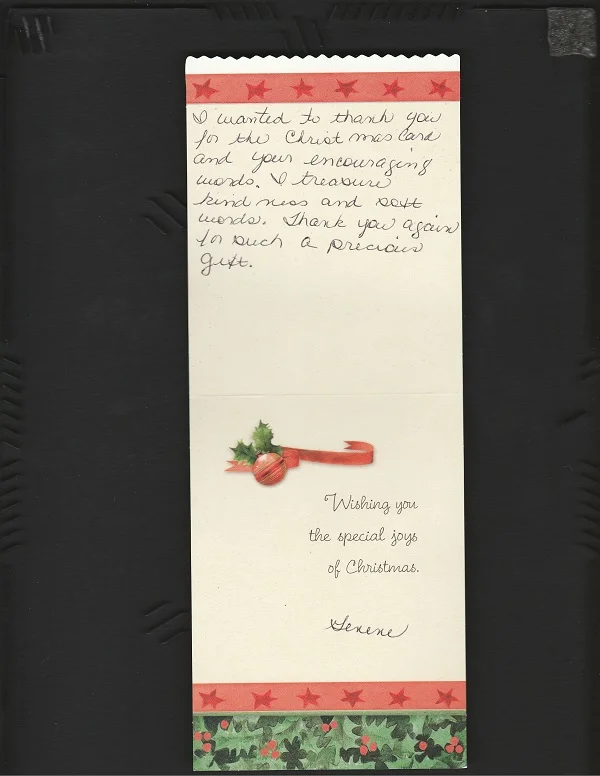 I wanted to thank you
for the Christmas Card
and your encouraging
words. I treasure
kindness and soft
words. Thank you again
for such a precious
gift.
Wishing you
the special joys
of Christmas.
Genene